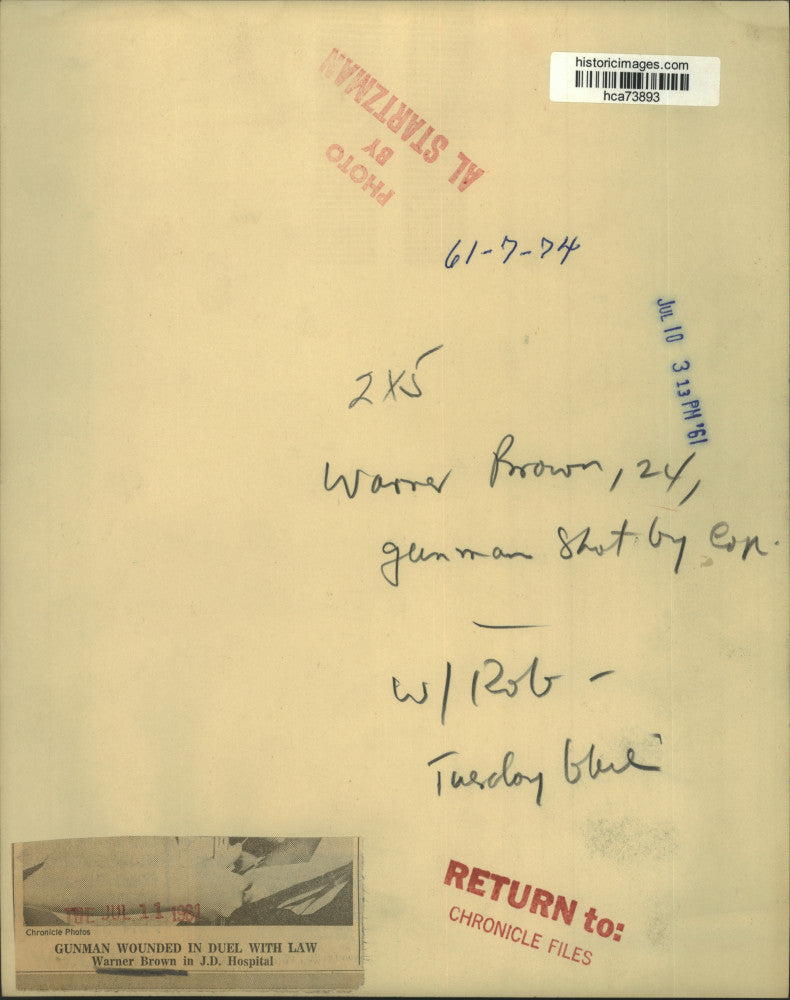 historicimages.com
hca73893
PHOTO
BY
AL STARTZMAN
61-7-74
JUL 10 3 13 PM '61
2X5
Warner Brown, 24,
gunman shot by cop.
w/ Rob -
Tuesday blue
TUE JUL 11 1961
Chronicle Photos
GUNMAN WOUNDED IN DUEL WITH LAW
Warner Brown in J.D. Hospital
RETURN to:
CHRONICLE FILES